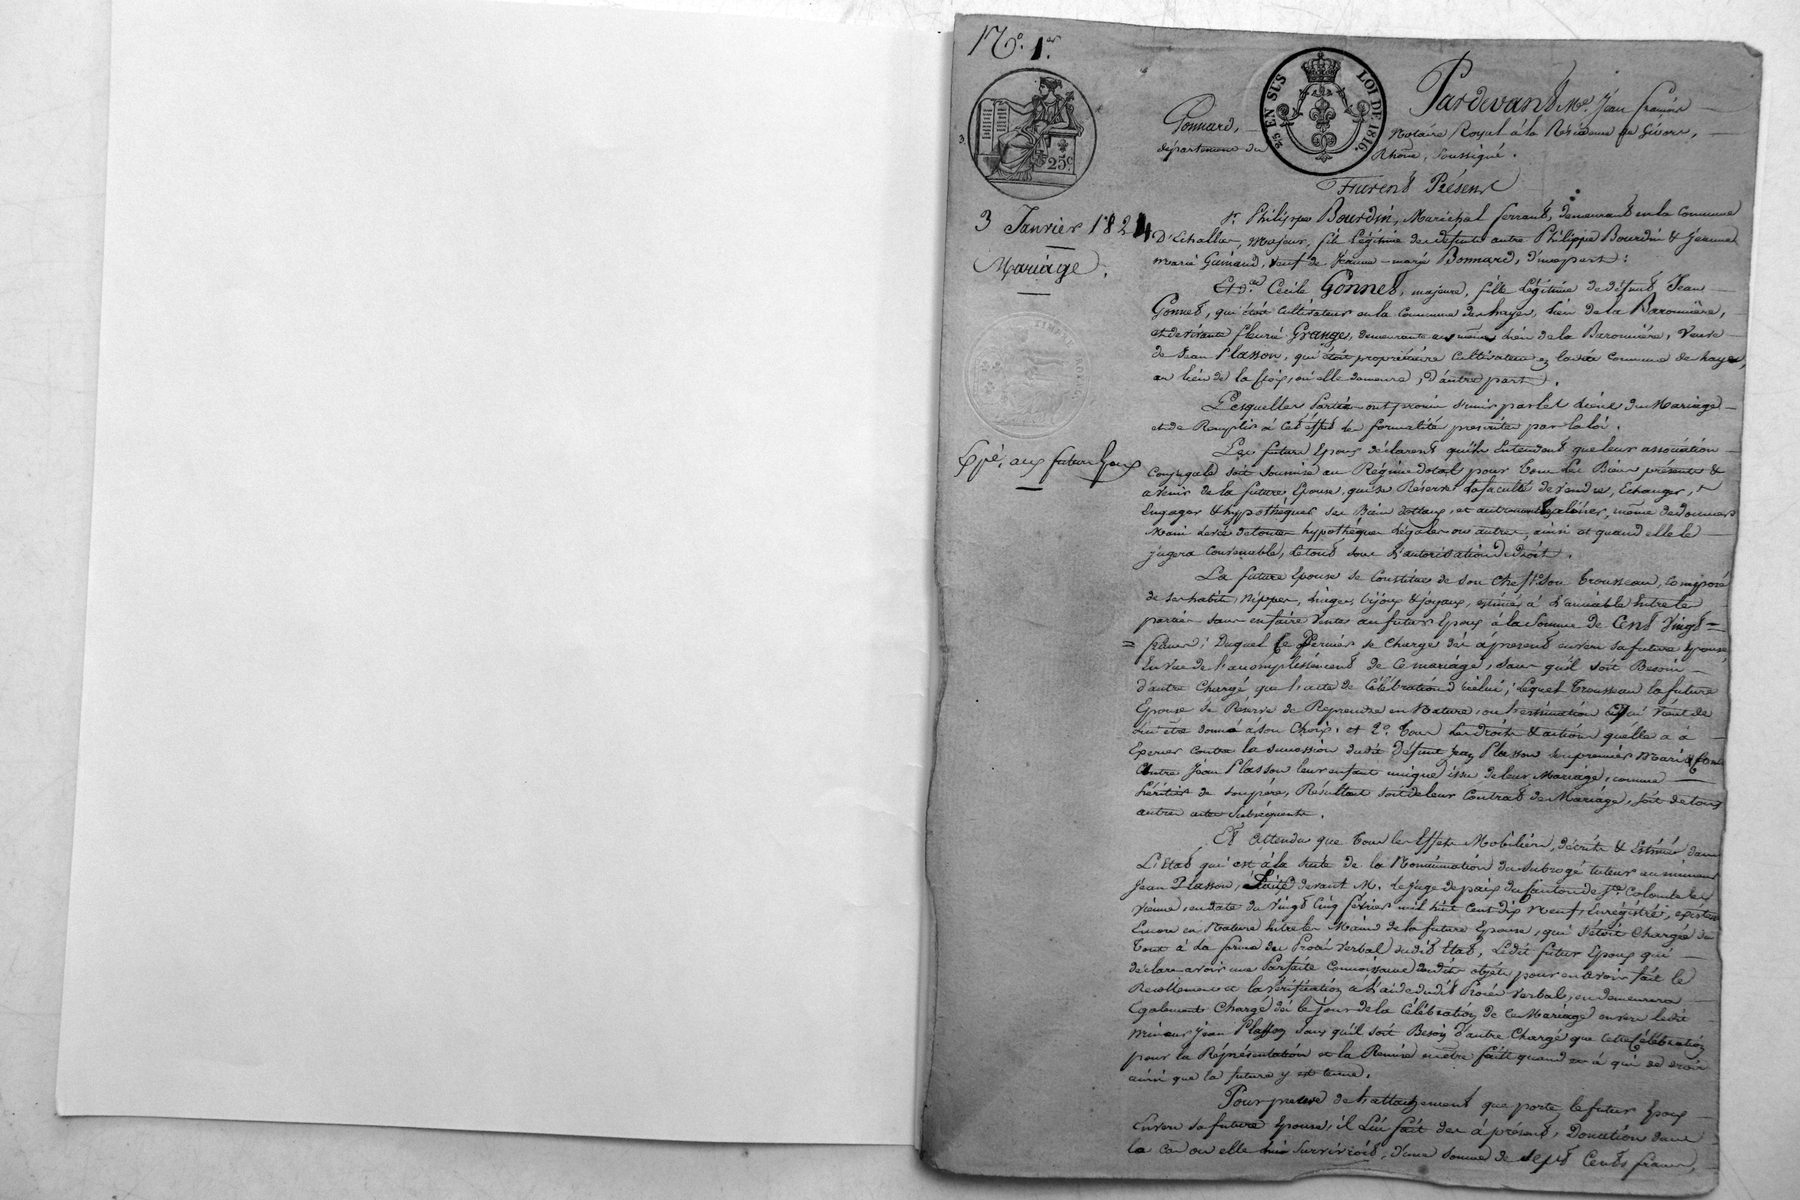 N.º 1.er
25 EN SUS LOI DE 1816.
25c.
Pardevant Me. Jean François
Ponnard, Notaire Royal à la Résidence de Givors,
département du Rhône, soussigné.
Furent Présens
3 Janvier 1824
Mariage.
TIMBRE ROYAL
Expé. aux futurs Epoux
Sr. Philippe Bourdin, Maréchal ferrant, demeurant en la Commune
D'Echallas, Majeur, fils légitime de défunts autre Philippe Bourdin & Jeanne
marie Guinand, veuf de Jeanne-marie Bonnard, d'une part;
Et d.me Cécile Gonnet, majeure, fille légitime de défunt Jean
Gonnet, qui étoit Cultivateur en la Commune des hayes, lieu de la Baronnière,
et de vivante fleurie Grange, demeurante au même lieu de la Baronnière, Veuve
de Jean Plasson, qui étoit propriétaire Cultivateur en ladite Commune des hayes,
au lieu de la , où elle demeure, d'autre part.
Lesquelles Parties ont promis s'unir par les liens du Mariage
et de Remplir à cet effet les formalités prescrites par la loi.
Les futurs Epoux déclarent qu'ils Entendent que leur association
Conjugale soit soumise au Régime dotal pour tous les Biens présents &
à venir de la future Epouse, qui se Réserve la faculté de vendre, Echanger,
Engager & hypothéquer ses Biens dotaux, et autrement les aliéner, même de donner
Main levée de toutes hypothèques légales ou autres, ainsi et quand elle le
jugera Convenable, le tout sous l'autorisation de droit.
La future Epouse se Constitue de son Chef 1.º son trousseau, Composé
de ses habits, Nippes, linges, bijoux & joyaux, estimés à l'amiable Entre les
parties sans en faire Vente au futur Epoux à la Somme de Cent Vingt
francs; Duquel Ce Dernier se Charge dès à présent envers sa future Epouse,
En vue de l'accomplissement de Ce mariage, sans qu'il soit Besoin
d'autre Charge que l'acte de Célébration d'icelui; lequel trousseau la future
Epouse se Réserve de Reprendre en Nature, ou l'estimation qui Vient de
lui être donnée à son Choix, et 2.º tous les droits & actions qu'elle a à
Exercer Contre la succession dudit défunt Jean Plasson son premier Mari &
Contre Jean Plasson leur enfant unique issu de leur Mariage, comme
héritier de son père, Résultant soit de leur Contrat de Mariage, soit de tous
autres actes Subséquents.
Et Attendu que tous les Effets Mobiliers, décrits & Estimés dans
L'Etat qui est à la suite de la Nomination du Subrogé tuteur au mineur
Jean Plasson, faite devant M. le juge de paix du Canton de Ste. Colombe les
Vienne, en date du Vingt Cinq février mil huit Cent dix Neuf, Enregistré, existent
Encore en Nature Entre les Mains de la future Epouse, qui s'étoit Chargée du
tout à la forme du Procès Verbal dudit Etat, ledit futur Epoux qui
déclare avoir une Parfaite Connoissance desdits objets pour en avoir fait le
Recollement et la vérification à l'aide dudit Procès Verbal, en demeurera
Egalement Chargé dès le jour de la Célébration de Ce Mariage envers ledit
mineur Jean Plasson sans qu'il soit Besoin d'autre Charge que cette Célébration
pour la Représentation et la Remise en être faite quand et à qui de droit
ainsi que la future y est tenue.
Pour preuve de l'attachement que porte le futur Epoux
Envers sa future Epouse, il lui fait dès à présent, Donation dans
le Cas où elle lui Survivroit, d'une somme de sept Cents francs,